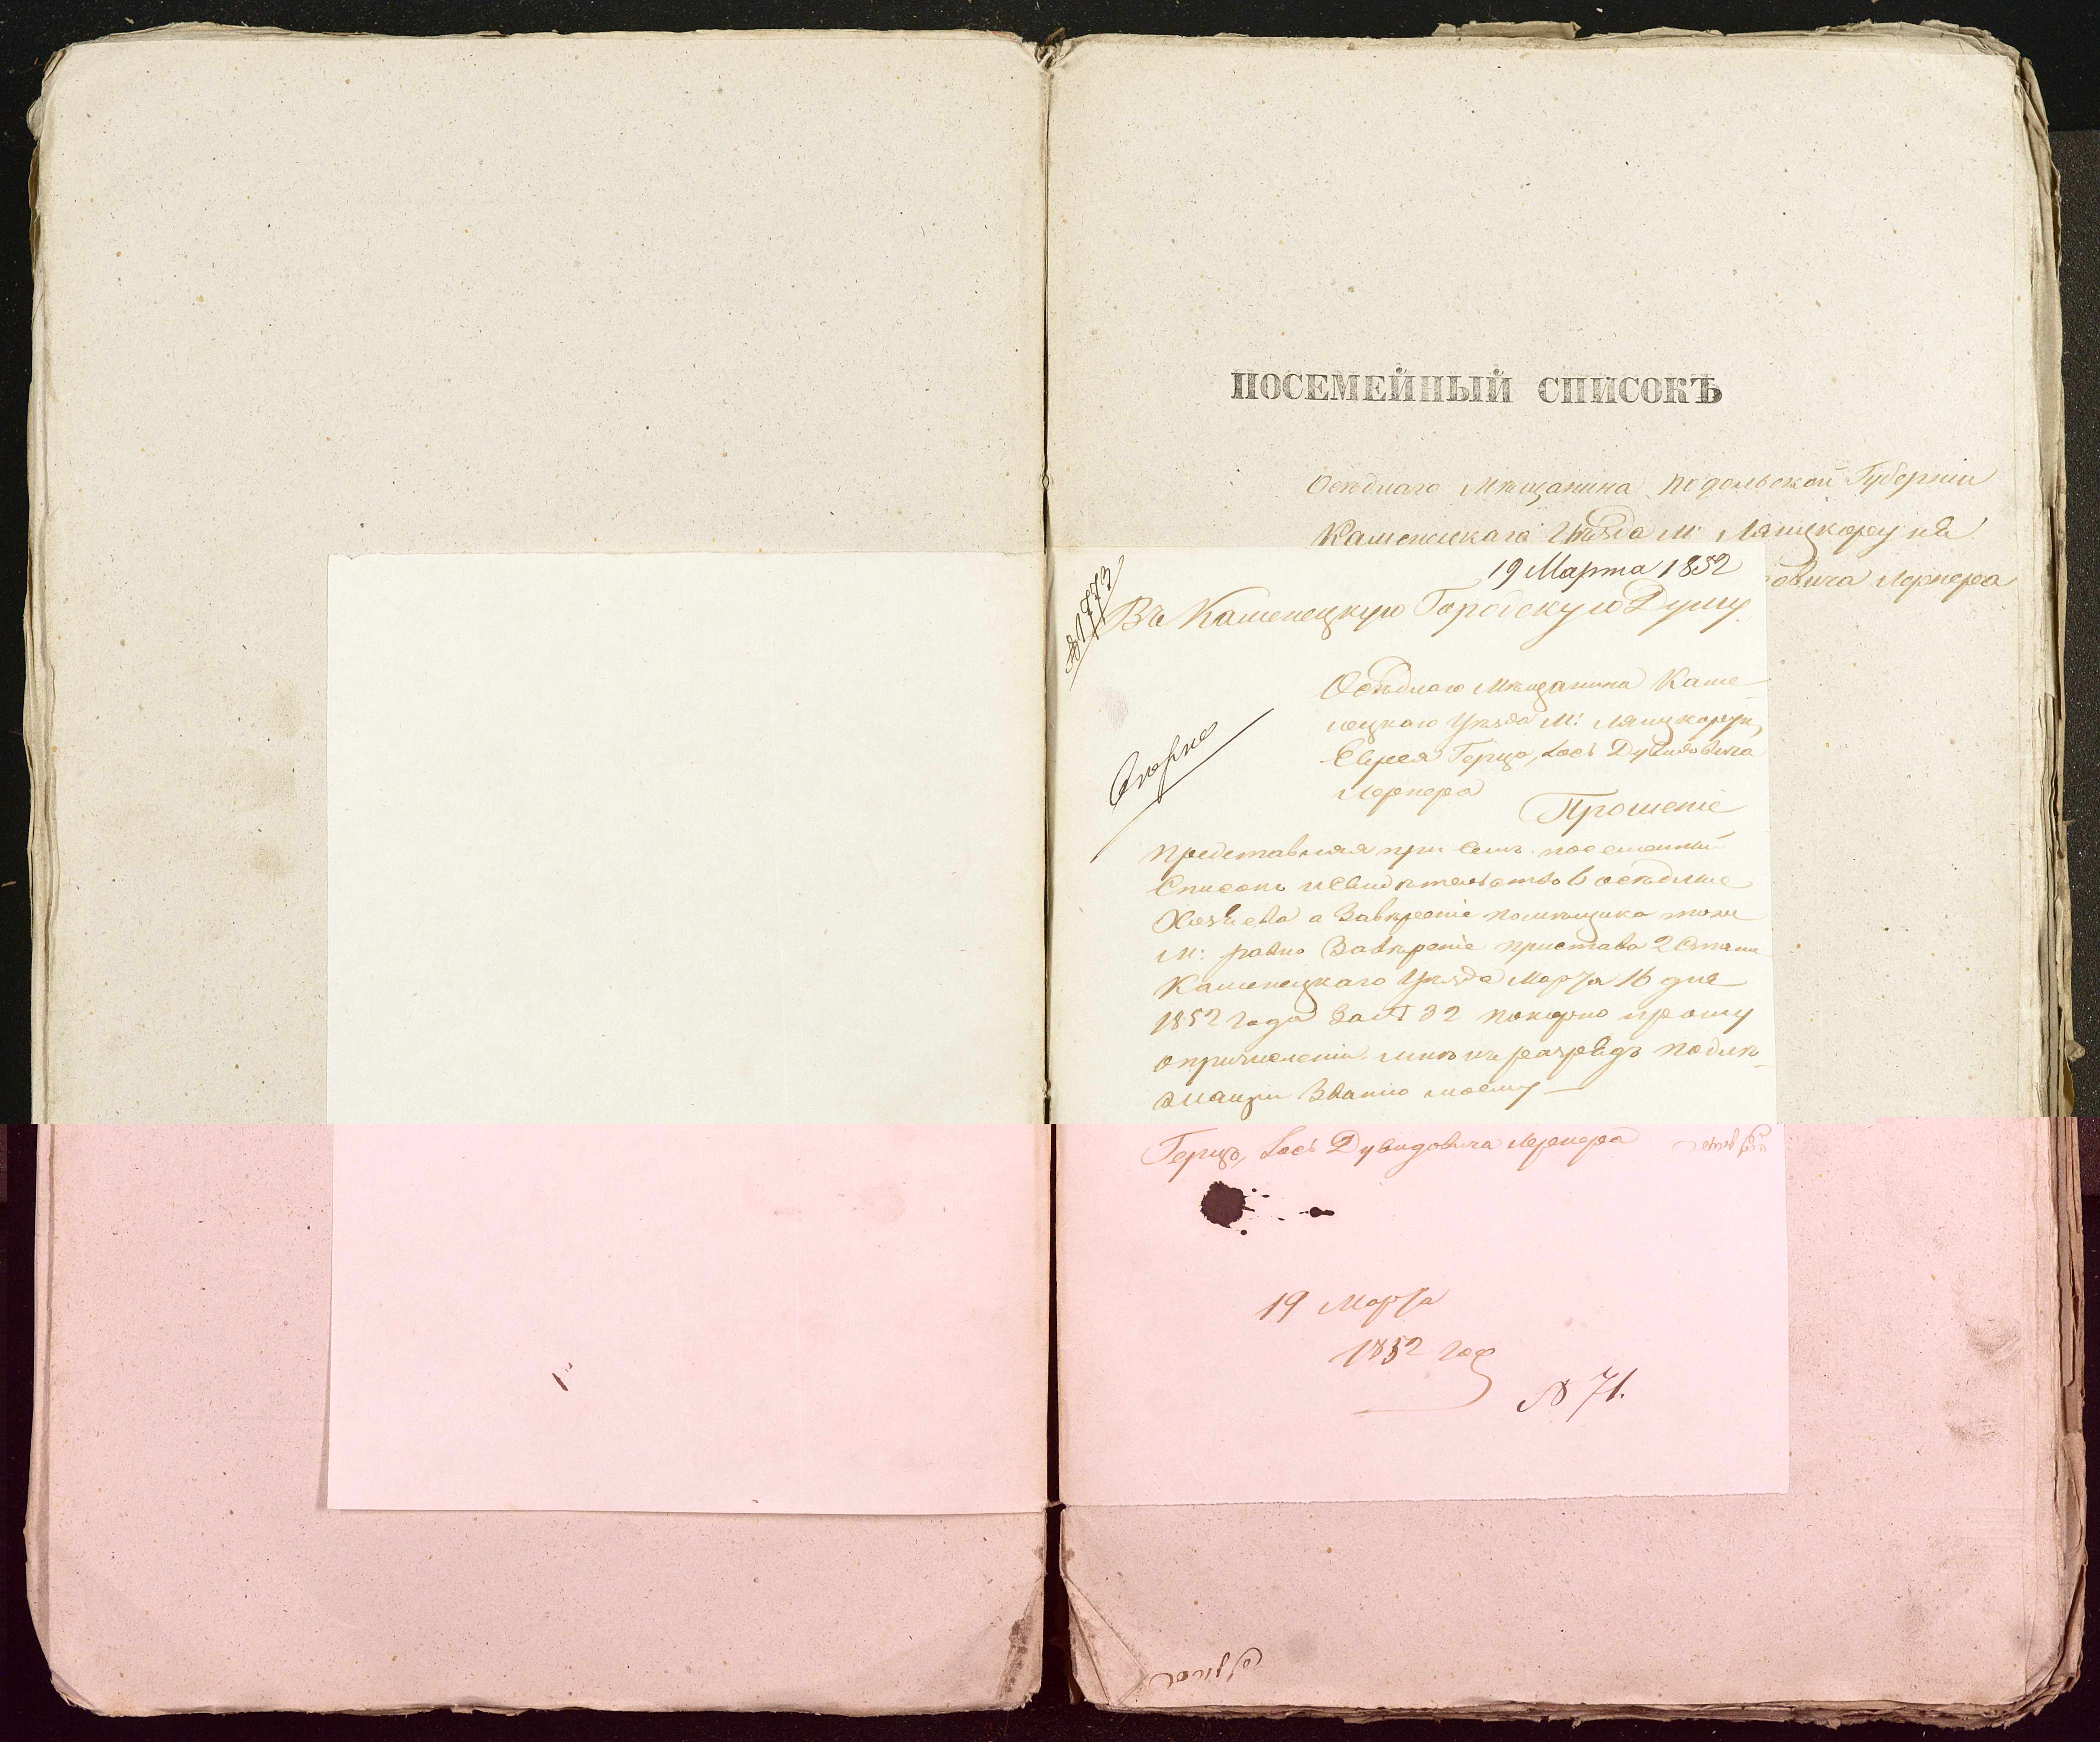 ПОСЕМЕЙНЫЙ СПИСОКЪ
Осѣдлаго Мѣщанина Подольской Губерніи
Каменецкаго Уѣзда М: Лянцкоруня
овича Лернера
№ 1773
19 Марта 1852
Въ Каменецкую Городскую Думу
Осѣдлаго Мѣщанина Каме-
нецкаго Уѣзда М: Лянцкоруня
Еврея Герцъ, Лосъ Дувидовича
Лернера
Прошеніе
Представляя при семъ посемейный
Списокъ и Свидѣтельство 6 осѣдлые
Хозяева а Завѣреніе помѣщика того
М: равно Завѣреніе пристава 2 Стана
Каменецкаго Уѣзда Марта 16 дня
1852 года За № 32 покорно прошу
о причисленіи мнѣ къ разрядъ подлѣ-
жащи Званію моему
Герцъ, Лосъ Дувидовича Лернера
19 Марта
1852 год
№ 71.